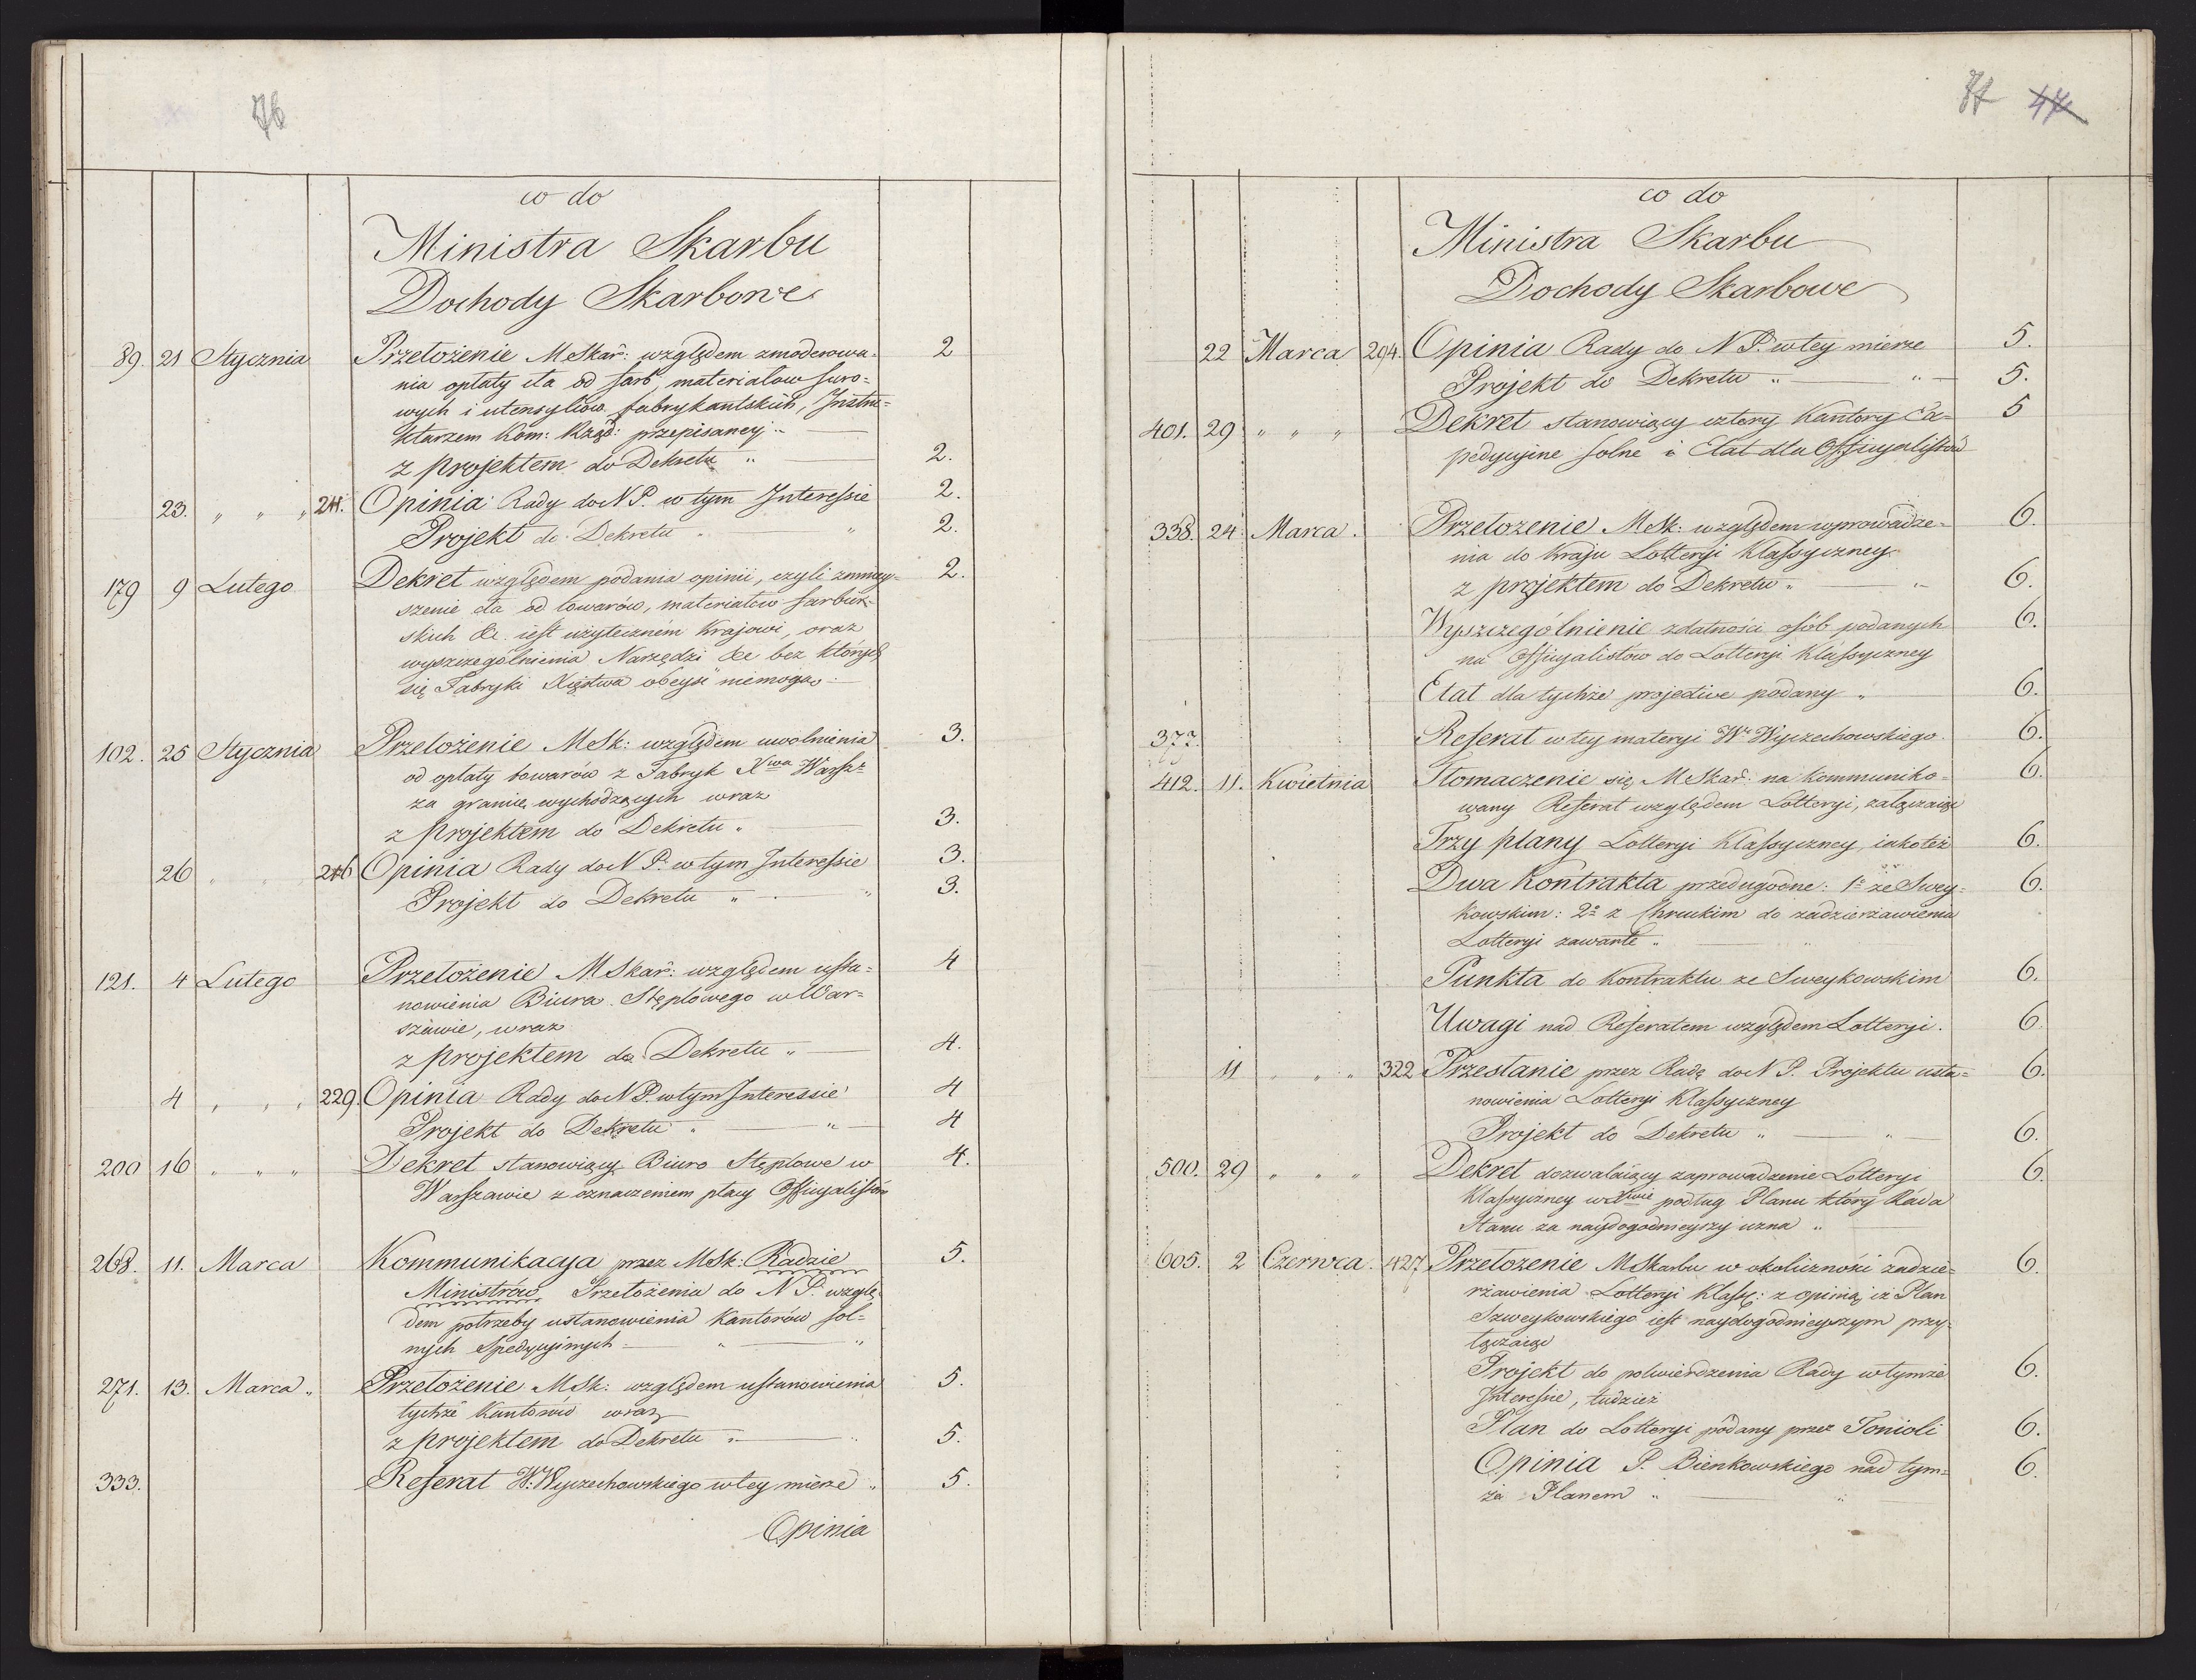 76
co do
Ministra Skarbu
Dochody Skarbowe
89. 21 Stycznia Przełożenie MSkar: względem zmoderowa- 2
nia opłaty cła od farb, materiałow suro-
wych i utensyliow fabrykantskich, Instru-
ktarzem Kom: Rząd: przepisaney „
z projektem do Dekretu „ 2.
23. „ „ „ 211. Opinia Rady do NP. w tym Interessie 2.
Projekt do Dekretu „ „ 2.
179 9 Lutego Dekret względem podania opinii, czyli zmniey- 2.
szenie cła od towarów, materiałow farbier-
skich &c. iest użyteczném Krajowi, oraz
wyszczególnienia Narzędzi &c bez których
się Fabryki Xięstwa obeyść niemogą „
102. 25 Stycznia Przełożenie MSk: względem uwolnienia 3.
od opłaty towarów z Fabryk Xwa Warsz
za granicę wychodzących wraz
z projektem do Dekretu „ 3.
26 „ „ 216 Opinia Rady do N P. w tym Interessie 3.
Projekt do Dekretu „ „ 3.
121. 4 Lutego Przełożenie MSkar: względem usta- 4
nowienia Biura Stęplowego w War-
szawie, wraz
z projektem do Dekretu „ 4.
4 „ „ „ 229. Opinia Rady do NP. w tym Interessie 4
Projekt do Dekretu „ „ 4
200 16 „ „ „ Dekret stanowiący Biuro Stęplowe w 4.
Warszawie z oznaczeniem płacy Officyalistów
268. 11. Marca Kommunikacya przez MSk: Radzie 5.
Ministrów Przełożenia do N P. wzglę-
dem potrzeby ustanowienia Kantorów sol-
nych Spedycyinych „ „
271. 13. Marca „ Przełożenie MSk: względem ustanowienia 5.
tychże Kantorów wraz
z projektem do Dekretu „ „ 5.
333. Referat W: Wyczechowskiego w tey mierze „ 5.
Opinia
77 47
co do
Ministra Skarbu
Dochody Skarbowe
22 Marca 294. Opinia Rady do N P. w tey mierze 5.
Projekt do Dekretu „ „ 5.
401. 29 „ „ „ Dekret stanowiący cztery Kantory Ex- 5
pedycyine solne i Etat dla Officyalistów
338. 24 Marca. Przełożenie MSk: względem wprowadze- 6.
nia do Kraju Lotteryi Klassyczney
z projektem do Dekretu „ „ 6.
Wyszczególnienie zdatności osób podanych 6.
na Officyalistow do Lotteryi Klassyczney
Etat dla tychże projective podany „ 6.
377. Referat w tey materyi Wo Wyczechowskiego. 6.
412. 11. Kwietnia Tłomaczenie się MSkar: na kommuniko- 6.
wany Referat względem Lotteryi, załączaiąc
Trzy plany Lotteryi Klassyczney, iakoteż 6.
Dwa Kontrakta przedugodne: 1o ze Swey- 6.
kowskim: 2o z Chruckim do zadzierżawienia
Lotteryi zawarte „
Punkta do Kontraktu ze Sweykowskim 6.
Uwagi nad Referatem względem Lotteryi. 6.
11 „ „ „ 322 Przesłanie przez Radę do N P. Projektu usta- 6.
nowienia Lotteryi Klassyczney
Projekt do Dekretu „ „ 6.
500. 29 „ „ „ Dekret dozwalaiący zaprowadzenie Lotteryi 6.
Klassyczney w Xwie podług Planu który Rada
Stanu za naydogodnieyszy uzna „
605. 2 Czerwca. 427 Przełożenie MSkarbu w okoliczności zadzie- 6.
rżawienia Lotteryi Klass: z opinią iż Plan
Szweykowskiego iest naydogodnieyszym przy-
łączaiąc
Projekt do potwierdzenia Rady w tymże 6.
Interessie, tudzież
Plan do Lotteryi podany przez Tonioli 6.
Opinia P. Bienkowskiego nad tym- 6.
że Planem „ „